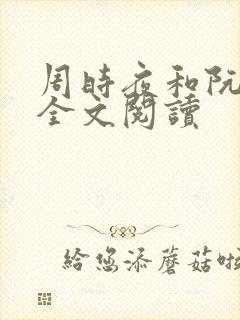 周時夜和阮
全文閱讀
給您添蘑菇啦